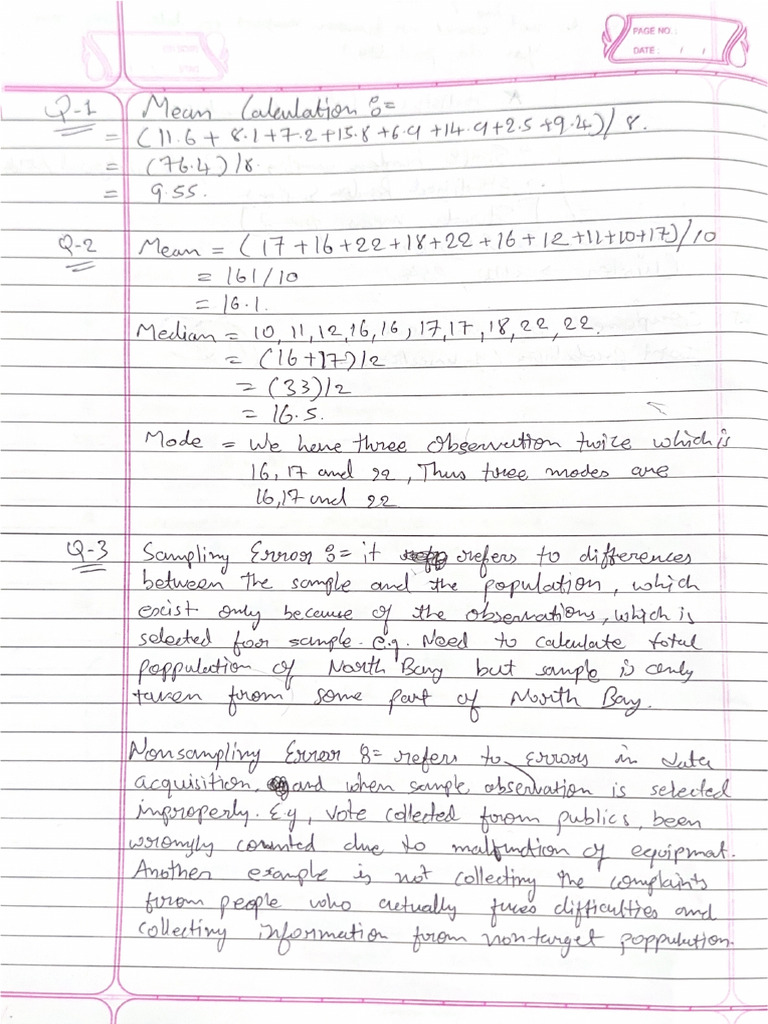 PAGE NO. :
DATE : / /
Q-1 Mean Calculation :=
= (11.6 + 8.1+7.2+15.8+6.9+14.9+2.5+9.4)/ 8.
= (76.4)/8.
= 9.55.
Q-2 Mean = (17+16+22+18+22+16+12+11+10+17)/10
= 161/10
= 16.1.
Median = 10, 11, 12, 16, 16, 17, 17, 18, 22, 22.
= (16+17)/2
= (33)/2
= 16.5.
Mode = We have three observation twice which is
16, 17 and 22, Thus three modes are
16,17 and 22
Q-3 Sampling Error := it refers to differences
between the sample and the population, which
exist only because of the observations, which is
selected for sample. e.g. Need to calculate total
poppulation of North Bay but sample is only
taken from some part of North Bay.
Nonsampling Error := refers to errors in data
acquisition, and when sample observation is selected
improperly. E.g, vote collected from publics, been
wrongly counted due to malfunction of equipmat.
Another example is not collecting the complaints
from people who actually faces difficulties and
collecting information from non-target poppulation.